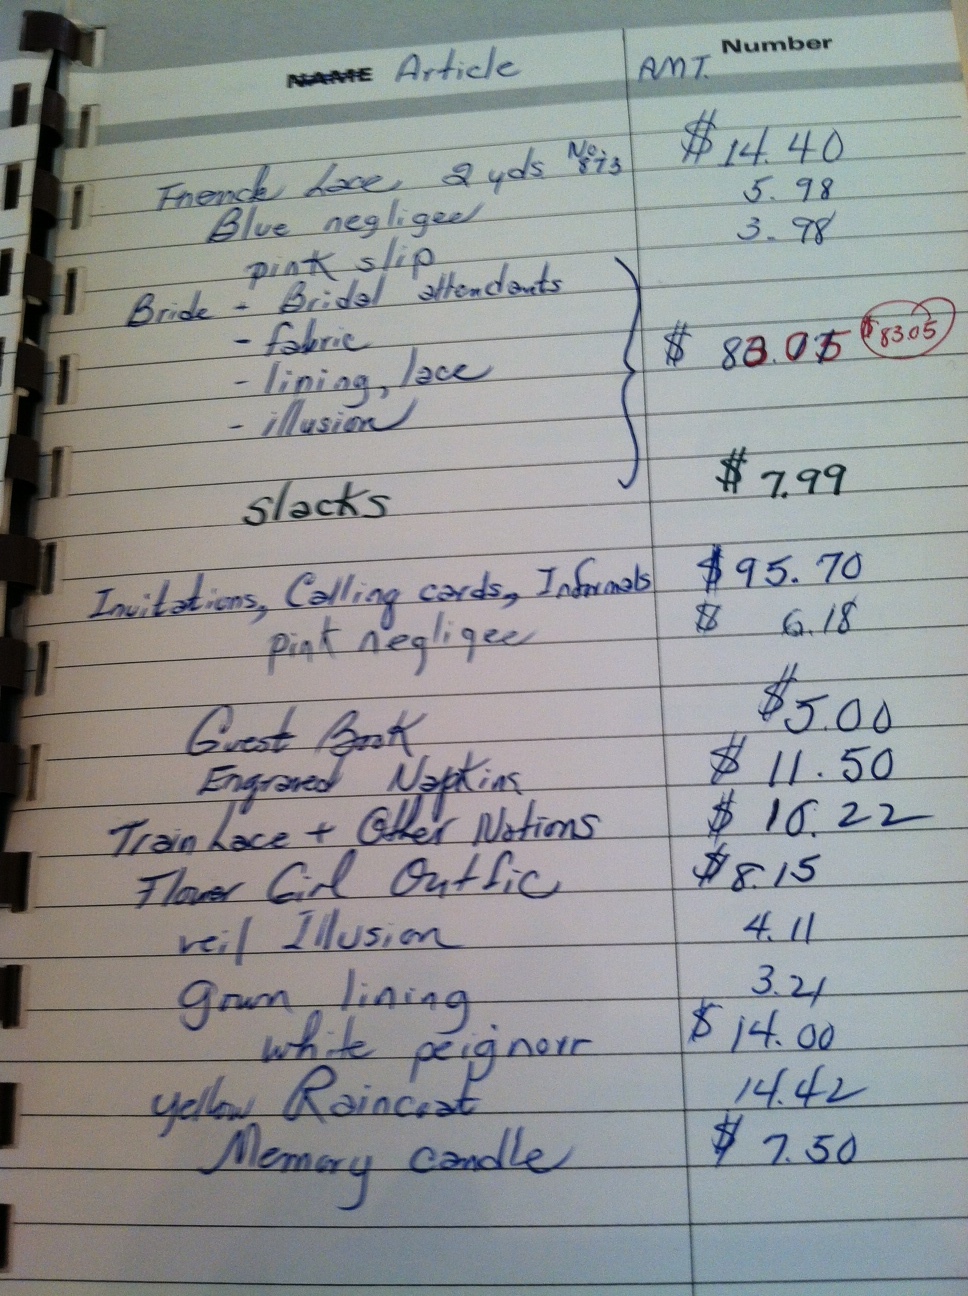 NAME Article AMT. Number
French Lace, 2 yds No. 873 $ 14.40
Blue negligee 5.98
pink slip 3.98
Bride - Bridal attendants
- fabric
- lining, lace $ 83.05 $83.05
- illusion
slacks $ 7.99
Invitations, Calling cards, Informals $ 95.70
pink negligee $ 6.18
Guest Book $5.00
Engraved Napkins $ 11.50
Train Lace + Other Notions $ 10.22
Flower Girl Outfic $8.15
veil Illusion 4.11
gown lining 3.21
white peignorr $ 14.00
yellow Raincoat 14.42
Memory candle $ 7.50